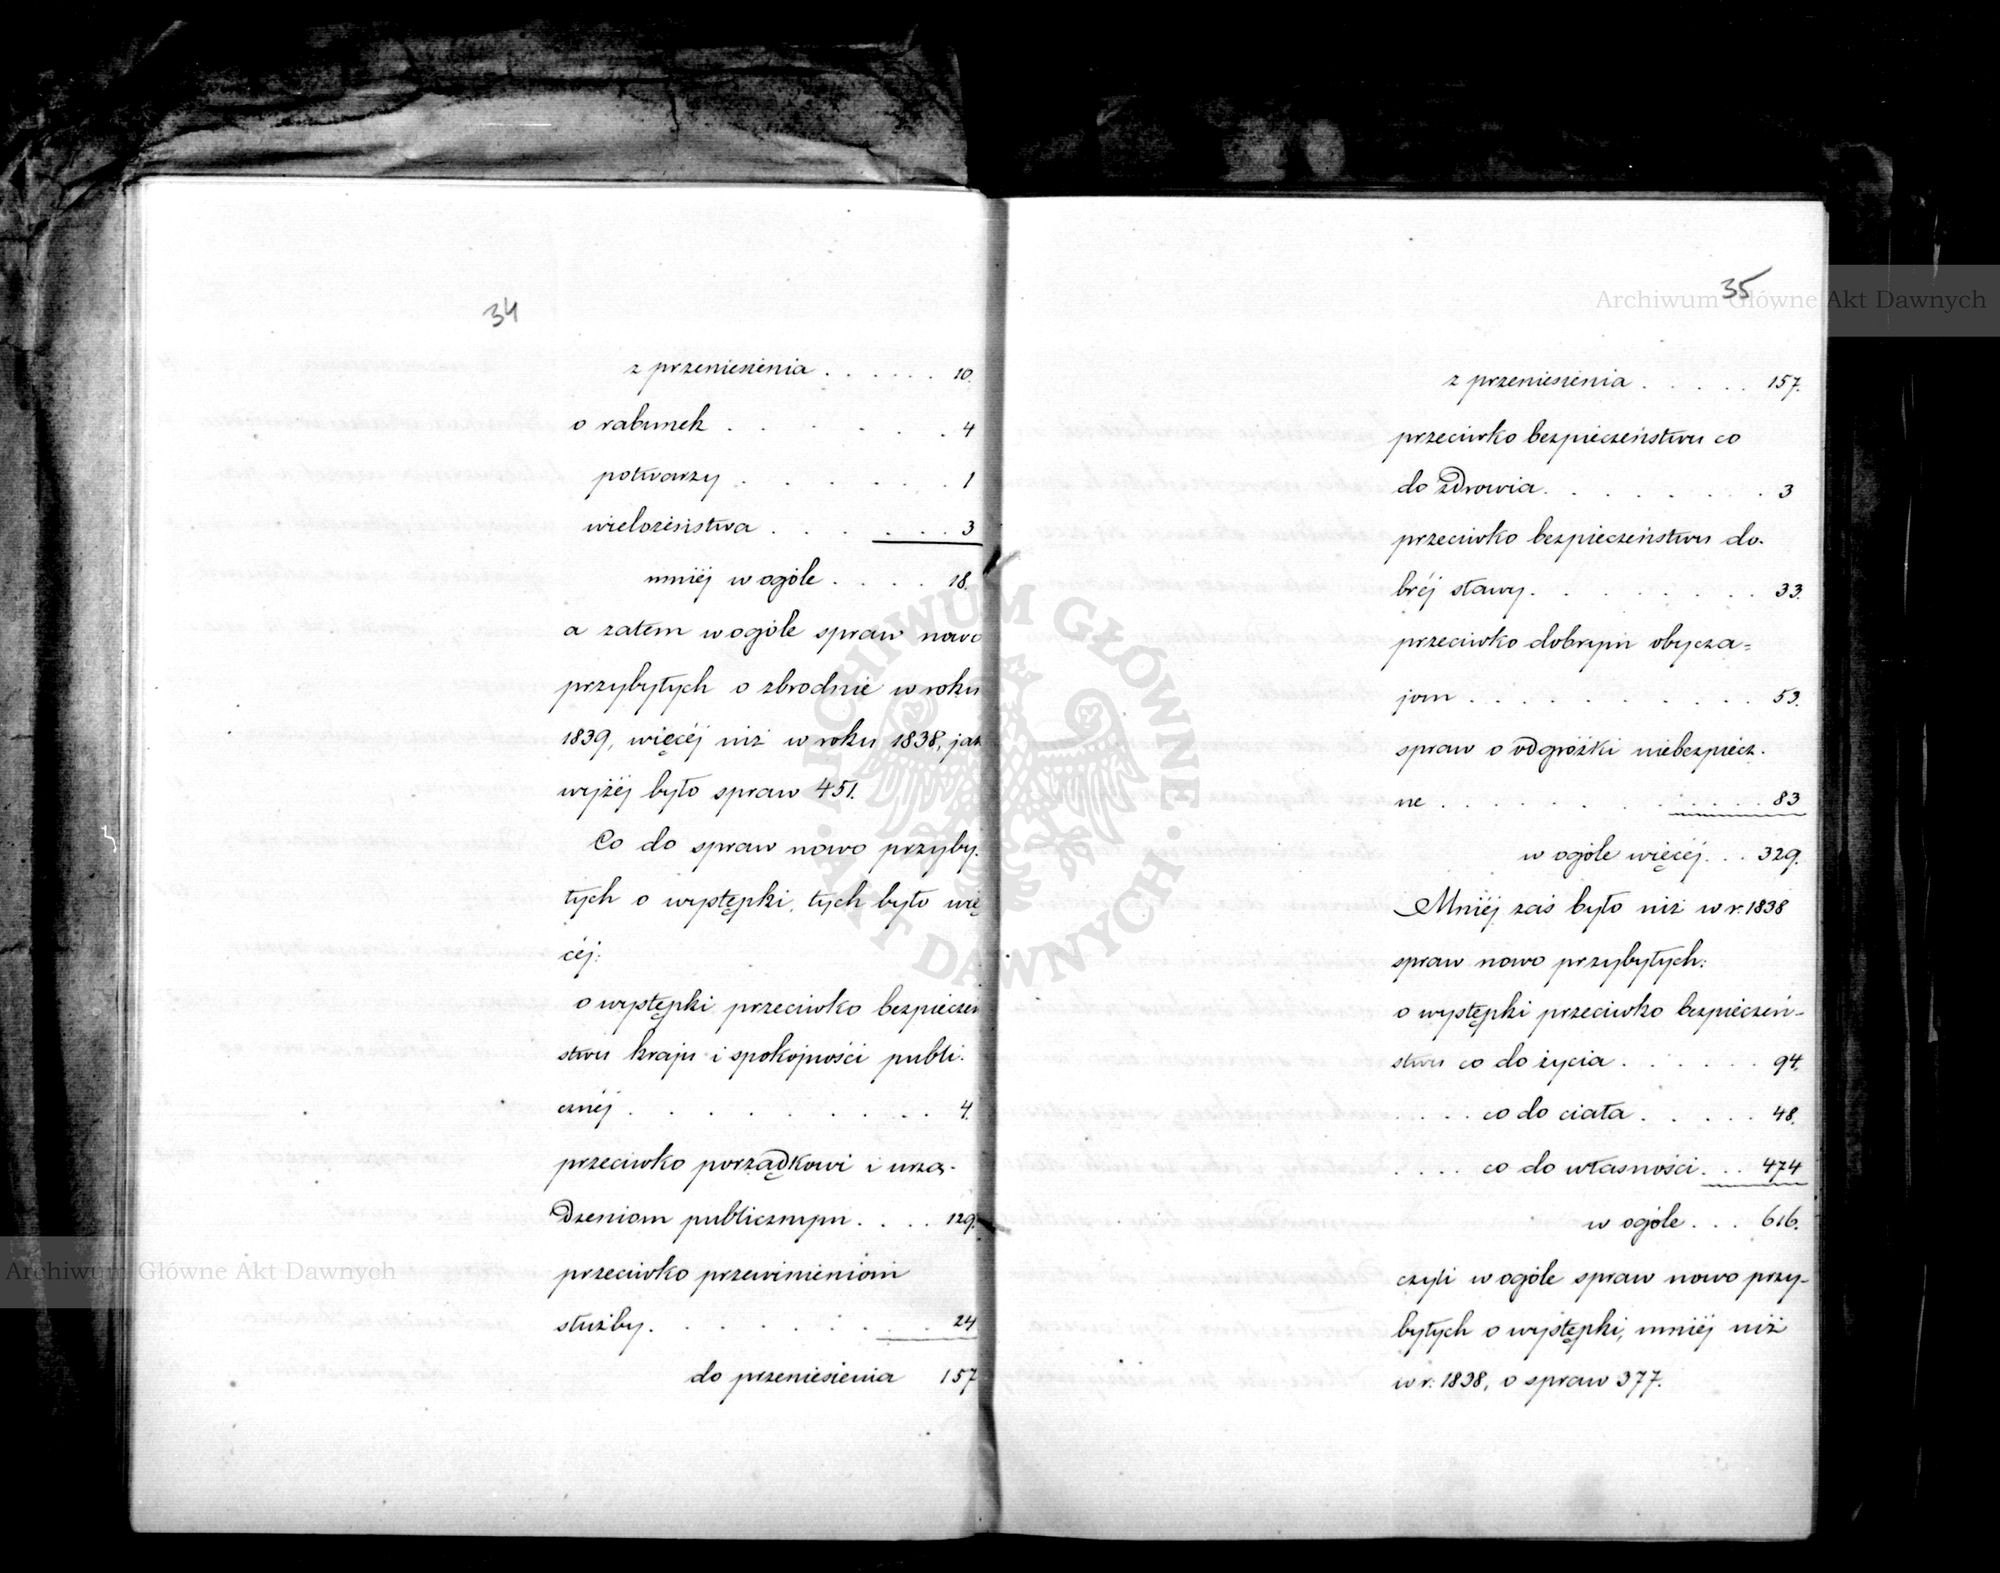 34
z przeniesienia . . . . . . 10.
o rabunek . . . . . . . 4
potwarzy . . . . . . 1
wielożeństwa . . . . . . . 3
mniéj w ogóle . . . . 18.
a zatem w ogóle spraw nowo
przybyłych o zbrodnie w roku
1839, więcéj niż w roku 1838, jak
wyżéj było spraw 451.
Co do spraw nowo przyby-
łych o występki, tych było wię
céj:
o występki przeciwko bezpieczeń
stwu kraju i spokojności publi-
cznéj . . . . . . . . . 4.
przeciwko porządkowi i urzą-
dzeniom publicznym . . . . 129.
przeciwko przewinieniom
służby . . . . . . . . . 24
do przeniesienia 157
35
z przeniesienia . . . . . 157.
przeciwko bezpieczeństwu co
do zdrowia . . . . . . . . 3
przeciwko bezpieczeństwu do-
bréj sławy . . . . . . . . 33.
przeciwko dobrym obycza=
jom . . . . . . . . . . 53.
spraw o odgróżki niebezpiecz-
ne . . . . . . . . . . . 83
w ogóle więcéj . . . 329.
Mniéj zaś było niż w r. 1838
spraw nowo przybyłych:
o występki przeciwko bezpieczeń-
stwu co do życia . . . . . . 94.
. . . . co do ciała . . . . . 48.
. . . . co do własności . . . 474
w ogóle . . . 616.
czyli w ogóle spraw nowo przy-
byłych o występki, mniéj niż
w r. 1838, o spraw 377.
Archiwum Główne Akt Dawnych
Archiwum Główne Akt Dawnych
ARCHIWUM GŁÓWNE
AKT DAWNYCH